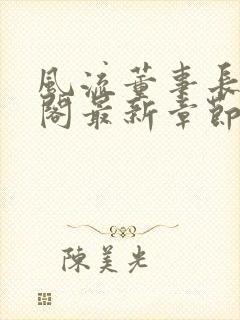 風流董事長
閣最新章節
陳美光